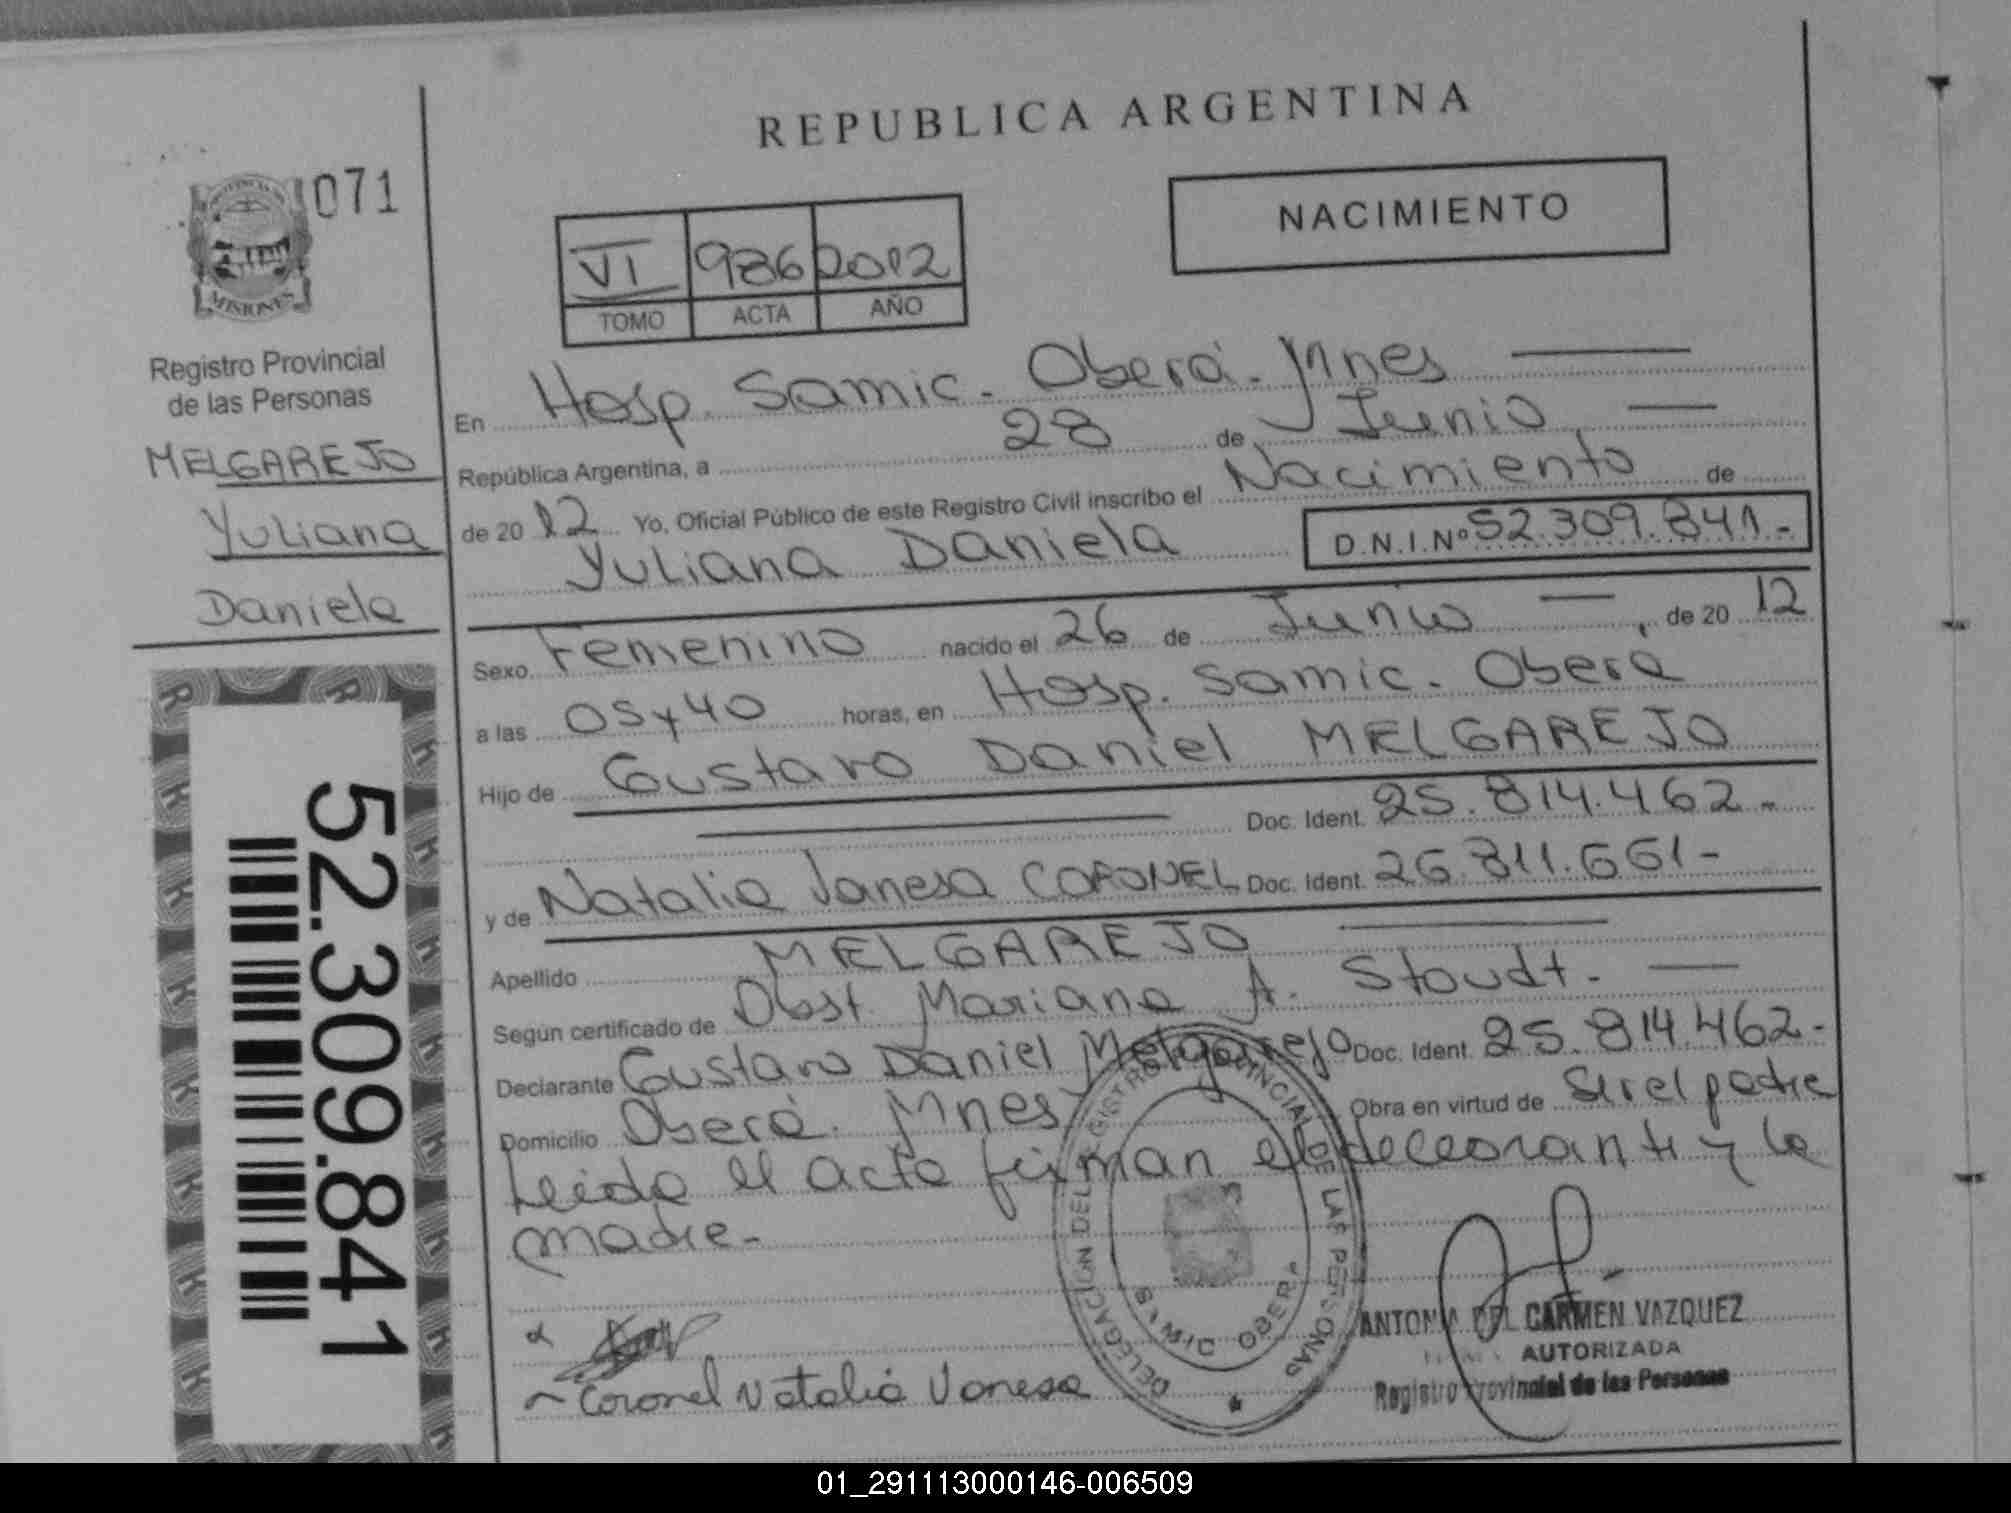 REPUBLICA ARGENTINA
071
NACIMIENTO
VI 986 2012
TOMO ACTA AÑO
MISIONES
Registro Provincial
de las Personas
MELGAREJO
Yuliana
Daniela
52.309.841
En Hosp. Samic. Oberá. Mnes
República Argentina, a 28 de Junio
de 2012 Yo, Oficial Público de este Registro Civil inscribo el Nacimiento de
Yuliana Daniela D.N.I.Nº 52.309.841.-
Sexo Femenino nacido el 26 de Junio, de 2012
a las 05 y 40 horas, en Hosp. Samic. Oberá
Hijo de Gustavo Daniel MELGAREJO
Doc. Ident. 25.814.462-
y de Natalia Vanesa CORONEL Doc. Ident. 26.811.661-
Apellido MELGAREJO
Según certificado de Obst. Mariana A. Stoudt.
Declarante Gustavo Daniel Melgarejo Doc. Ident. 25.814.462-
Domicilio Oberá. Mnes Obra en virtud de ser el padre
Leida el acta firman el declarante y la
madre-
DELEGACIÓN DEL REGISTRO PROVINCIAL DE LAS PERSONAS
SAMIC OBERA
Coronel Natalia Vanesa
ANTONIA DEL CARMEN VAZQUEZ
AUTORIZADA
Registro Provincial de las Personas
01_291113000146-006509